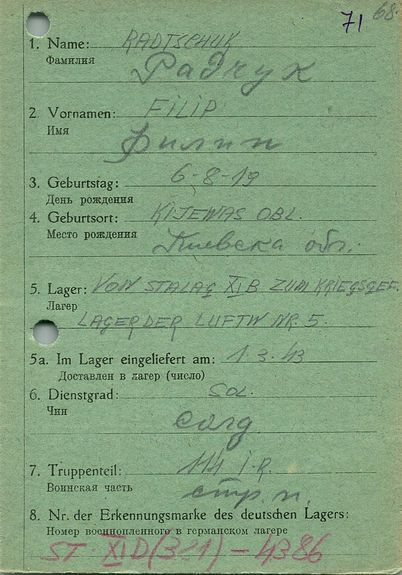 71 68.
1. Name: RADTSCHUK
Фамилия Радчук
2. Vornamen: FILIP
Имя Филип
3. Geburtstag: 6-8-19
День рождения
4. Geburtsort: KIJEWAS OBL.
Место рождения Киевска обл.
5. Lager: VON STALAG XIB ZUM KRIEGSGEF.
Лагер
LAGER DER LUFTW NR. 5.
5a. Im Lager eingeliefert am: 1.3.43
Доставлен в лагер (число)
6. Dienstgrad: SOL.
Чин солд
7. Truppenteil: 114 I.R.
Воинская часть стр. п.
8. Nr. der Erkennungsmarke des deutschen Lagers:
Номер военнопленного в германском лагере
ST XID (321) – 4386